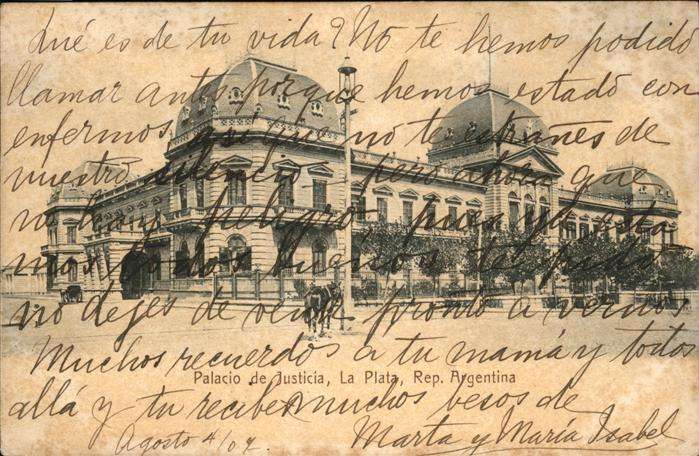 Qué es de tu vida? No te hemos podido
llamar antes porque hemos estado con
enfermos así que no te extrañes de
nuestro silencio pero ahora que
no hay peligro pues ya esta
mos todos buenos te pido
no dejes de venir pronto a vernos
Muchos recuerdos a tu mamá y todos
Palacio de Justicia, La Plata, Rep. Argentina
allá y tu recibe muchos besos de
Agosto 4/07.
Marta y María Isabel